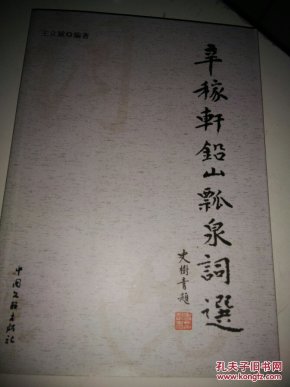 王立斌编著
辛稼軒鉛山瓢泉詞選
史樹青題
中国文联出版社
孔夫子旧书网